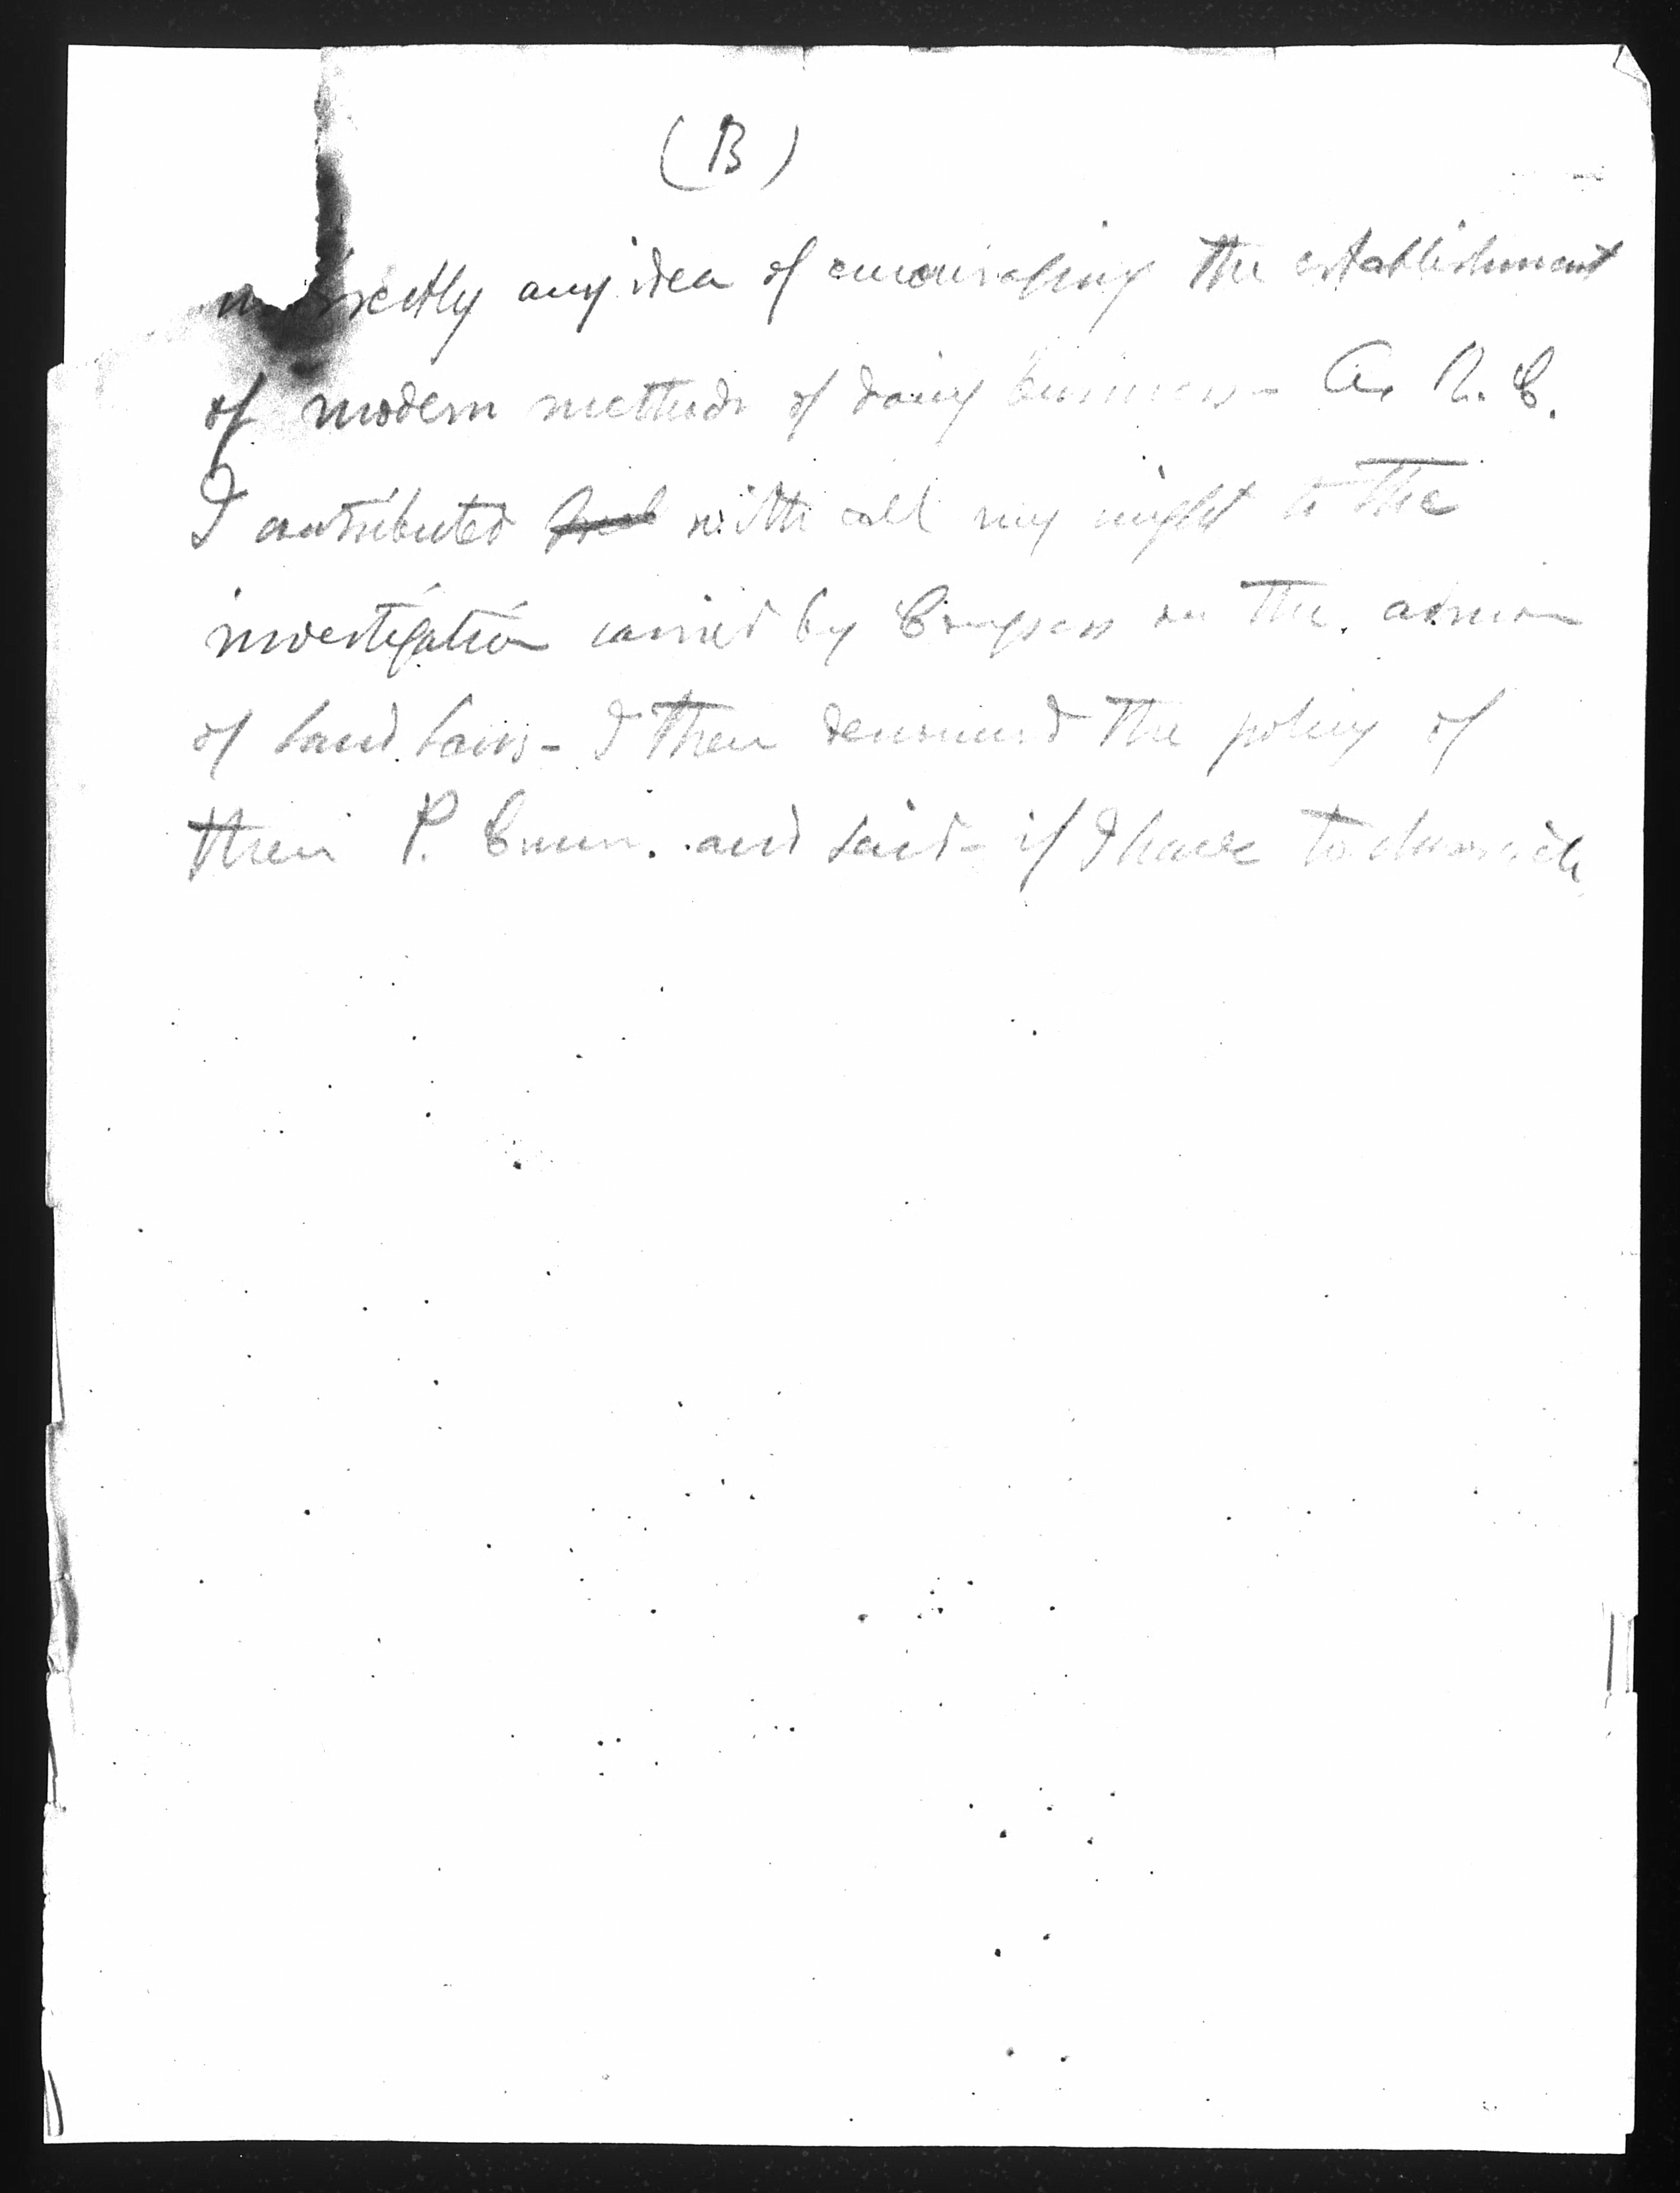 (B)
indirectly any idea of encouraging the establishment
of modern methods of doing business - As R. C.
I contributed with all my might to the
investigation carried by Congress on the admon
of Land Laws - I then denounced the policy of
then P. Comm. and said - if I have to